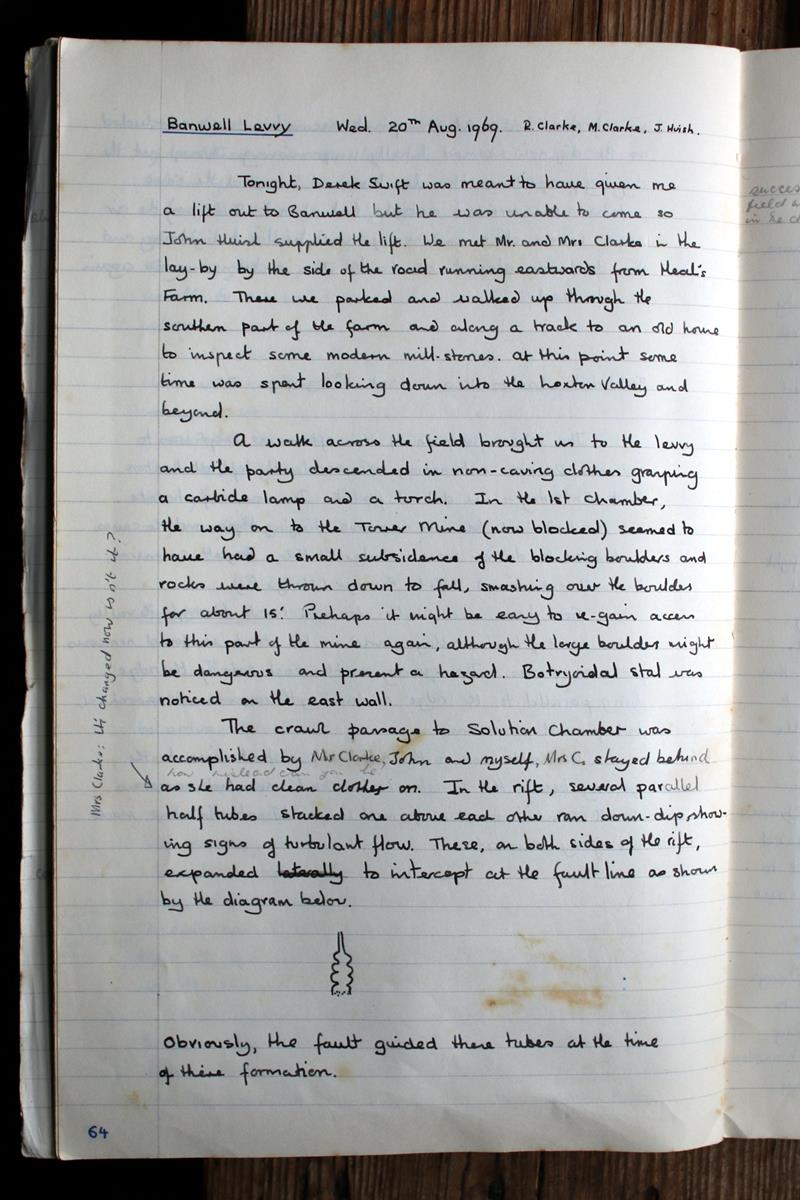 Banwell Levvy Wed. 20TH Aug. 1969. R. Clarke, M. Clarke, J. Huish.
Tonight, Derek Swift was meant to have given me
a lift out to Banwell but he was unable to come so
John Huish supplied the lift. We met Mr. and Mrs Clarke in the
lay-by by the side of the road running eastwards from Heal's
Farm. There we parked and walked up through the
southern part of the farm and along a track to an old house
to inspect some modern mill-stones. at this point some
time was spent looking down into the Loxton Valley and
beyond.
A walk across the field brought us to the levvy
and the party descended in non-caving clothes grasping
a carbide lamp and a torch. In the 1st chamber,
the way on to the Tower Mine (now blocked) seemed to
have had a small subsidence of the blocking boulders and
rocks were thrown down to fall, smashing over the boulders
for about 15'. Perhaps it might be easy to re-gain access
to this part of the mine again, although the large boulders might
be dangerous and present a hazard. Botryoidal stal was
noticed on the east wall.
The crawl passage to Solution Chamber was
accomplished by Mr Clarke, John and myself, Mrs C. stayed behind
how mislead can you be
as she had clean clothes on. In the rift, several parallel
half tubes stacked one above each other ran down-dip show-
ing signs of turbulant flow. These, on both sides of the rift,
expanded laterally to intercept at the fault line as shown
by the diagram below.
Obviously, the fault guided these tubes at the time
of their formation.
64
Mrs Clarke: it's changed now isn't it?
succes
field
in the c